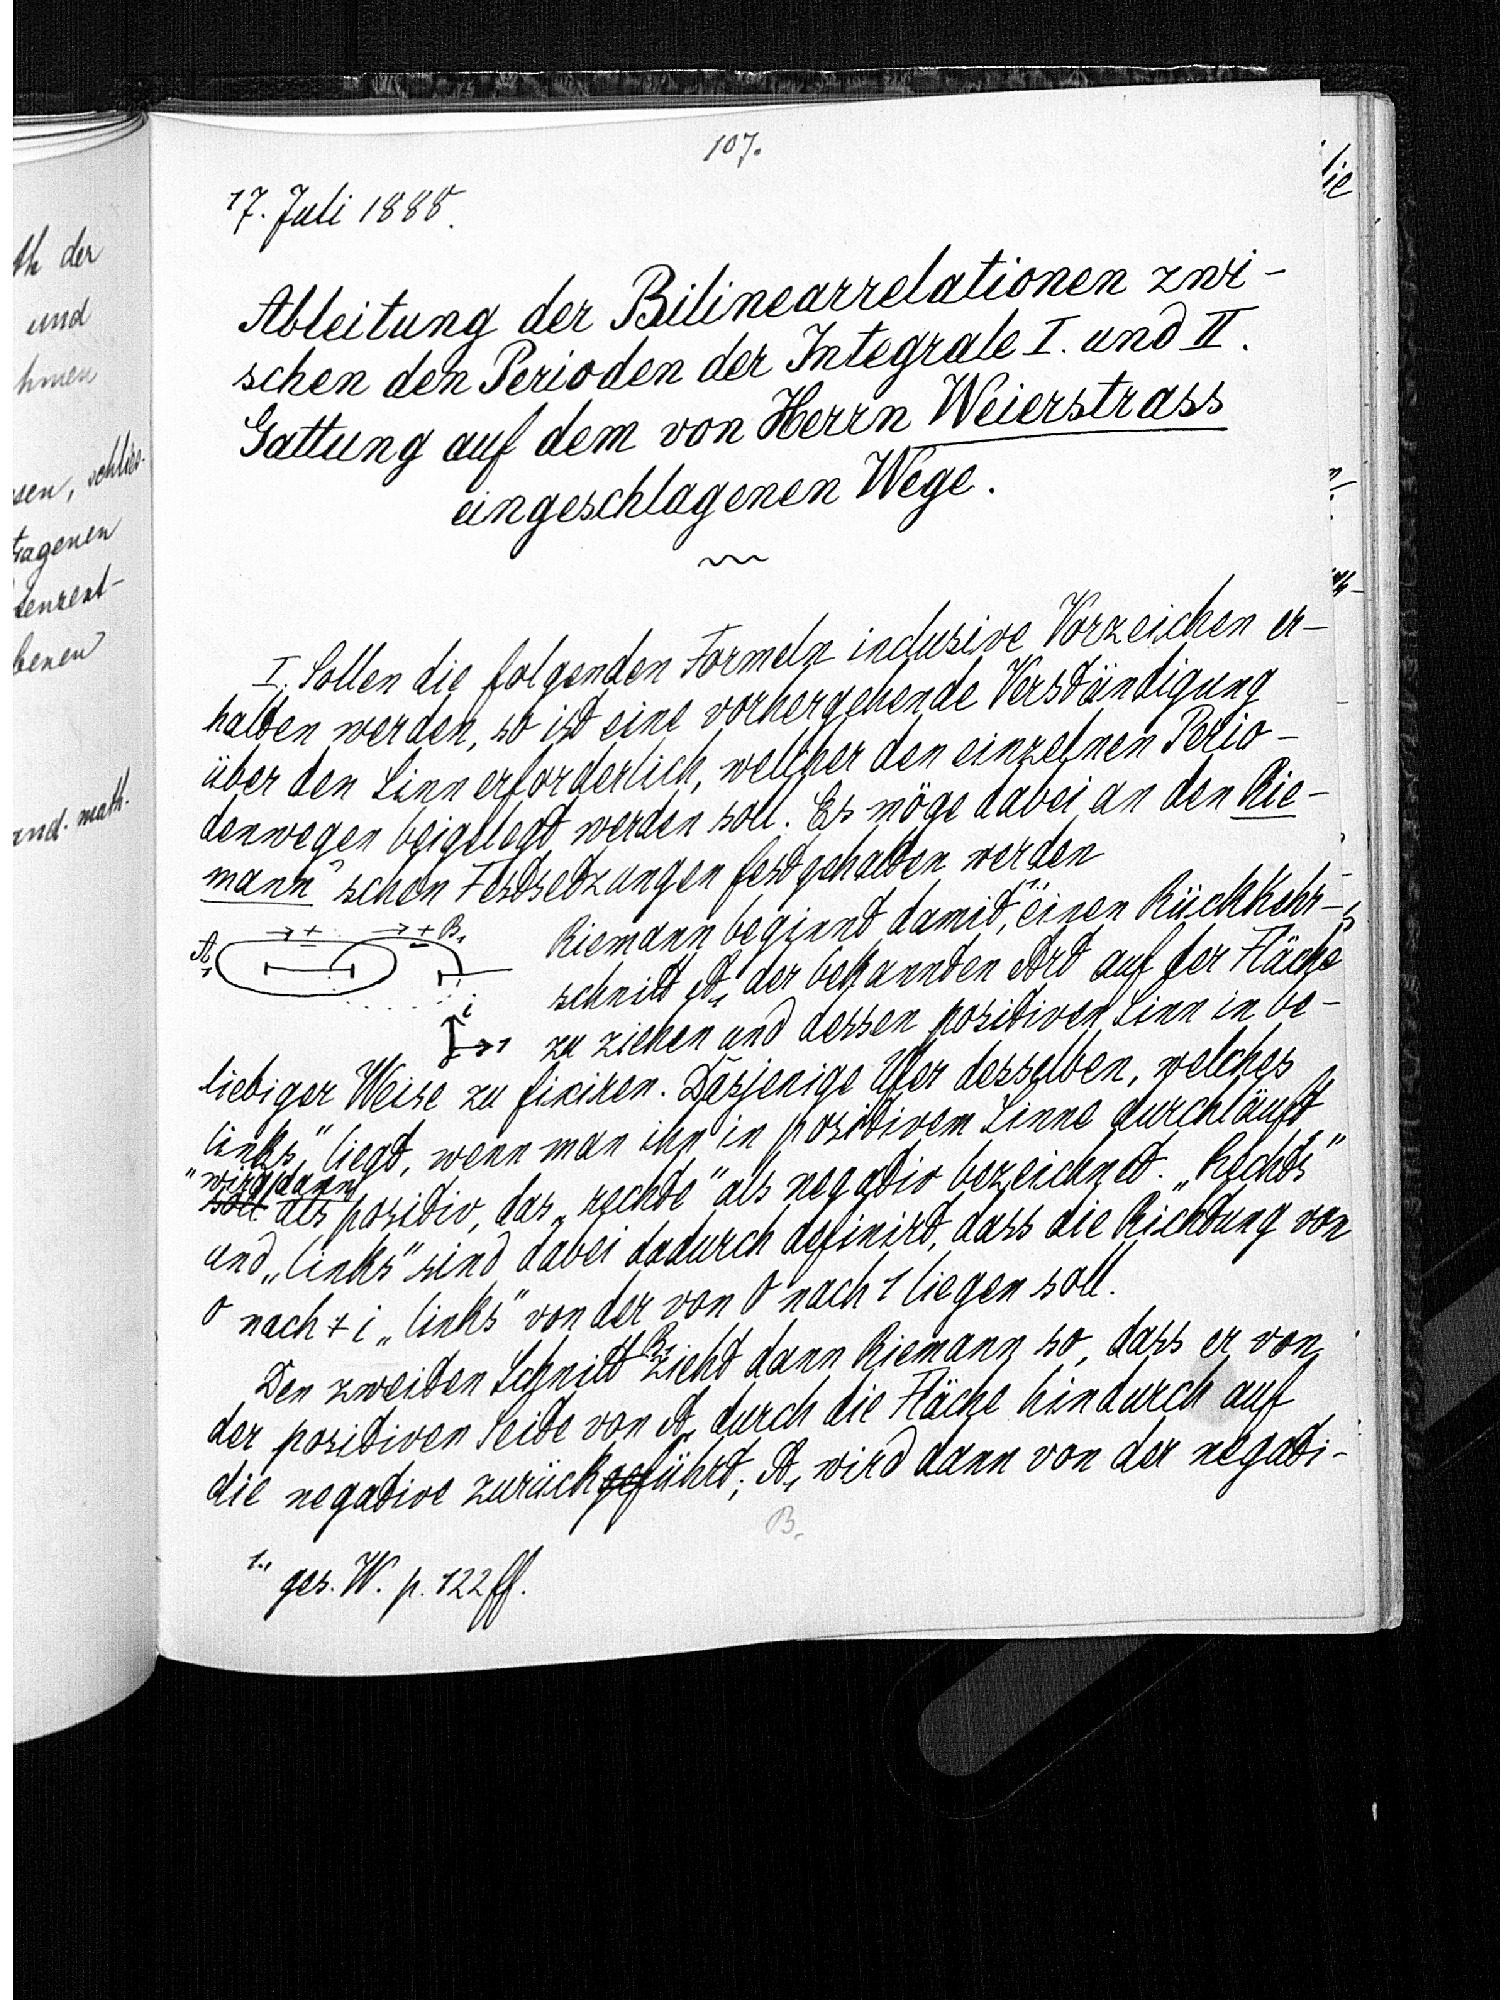 th der
und
hmen
sen, schlies-
tragenen
benen
and. math.
107.
17. Juli 1888.
Ableitung der Bilinearrelationen zwi-
schen den Perioden der Integrale I. und II.
Gattung auf dem von Herrn Weierstrass
eingeschlagenen Wege.
I. Sollen die folgenden Formeln inclusive Vorzeichen er-
halten werden, so ist eine vorhergehende Verständigung
über den Sinn erforderlich, welcher den einzelnen Perio-
denwegen beigelegt werden soll. Es möge dabei an den Rie-
mann'schen Festsetzungen festgehalten werden
A₁ + B₁ + i 1
Riemann beginnt damit, einen Rückkehr-
schnitt A₁ der bekannten Art auf der Fläche
zu ziehen und dessen positiven Sinn in be-
liebiger Weise zu fixiren. Dasjenige Ufer desselben, welches
„links" liegt, wenn man ihn in positivem Sinne durchläuft
wird dann
soll als positiv, das „rechte" als negativ bezeichnet. „Rechts"
und „links" sind dabei dadurch definirt, dass die Richtung von
0 nach + i „links" von der von 0 nach 1 liegen soll.
Den zweiten Schnitt B₁ zieht dann Riemann so, dass er von
der positiven Seite von A₁ durch die Fläche hindurch auf
die negative zurückgeführt; A₁ wird dann von der negati-
B₁
1., ges. W. p. 122 ff.